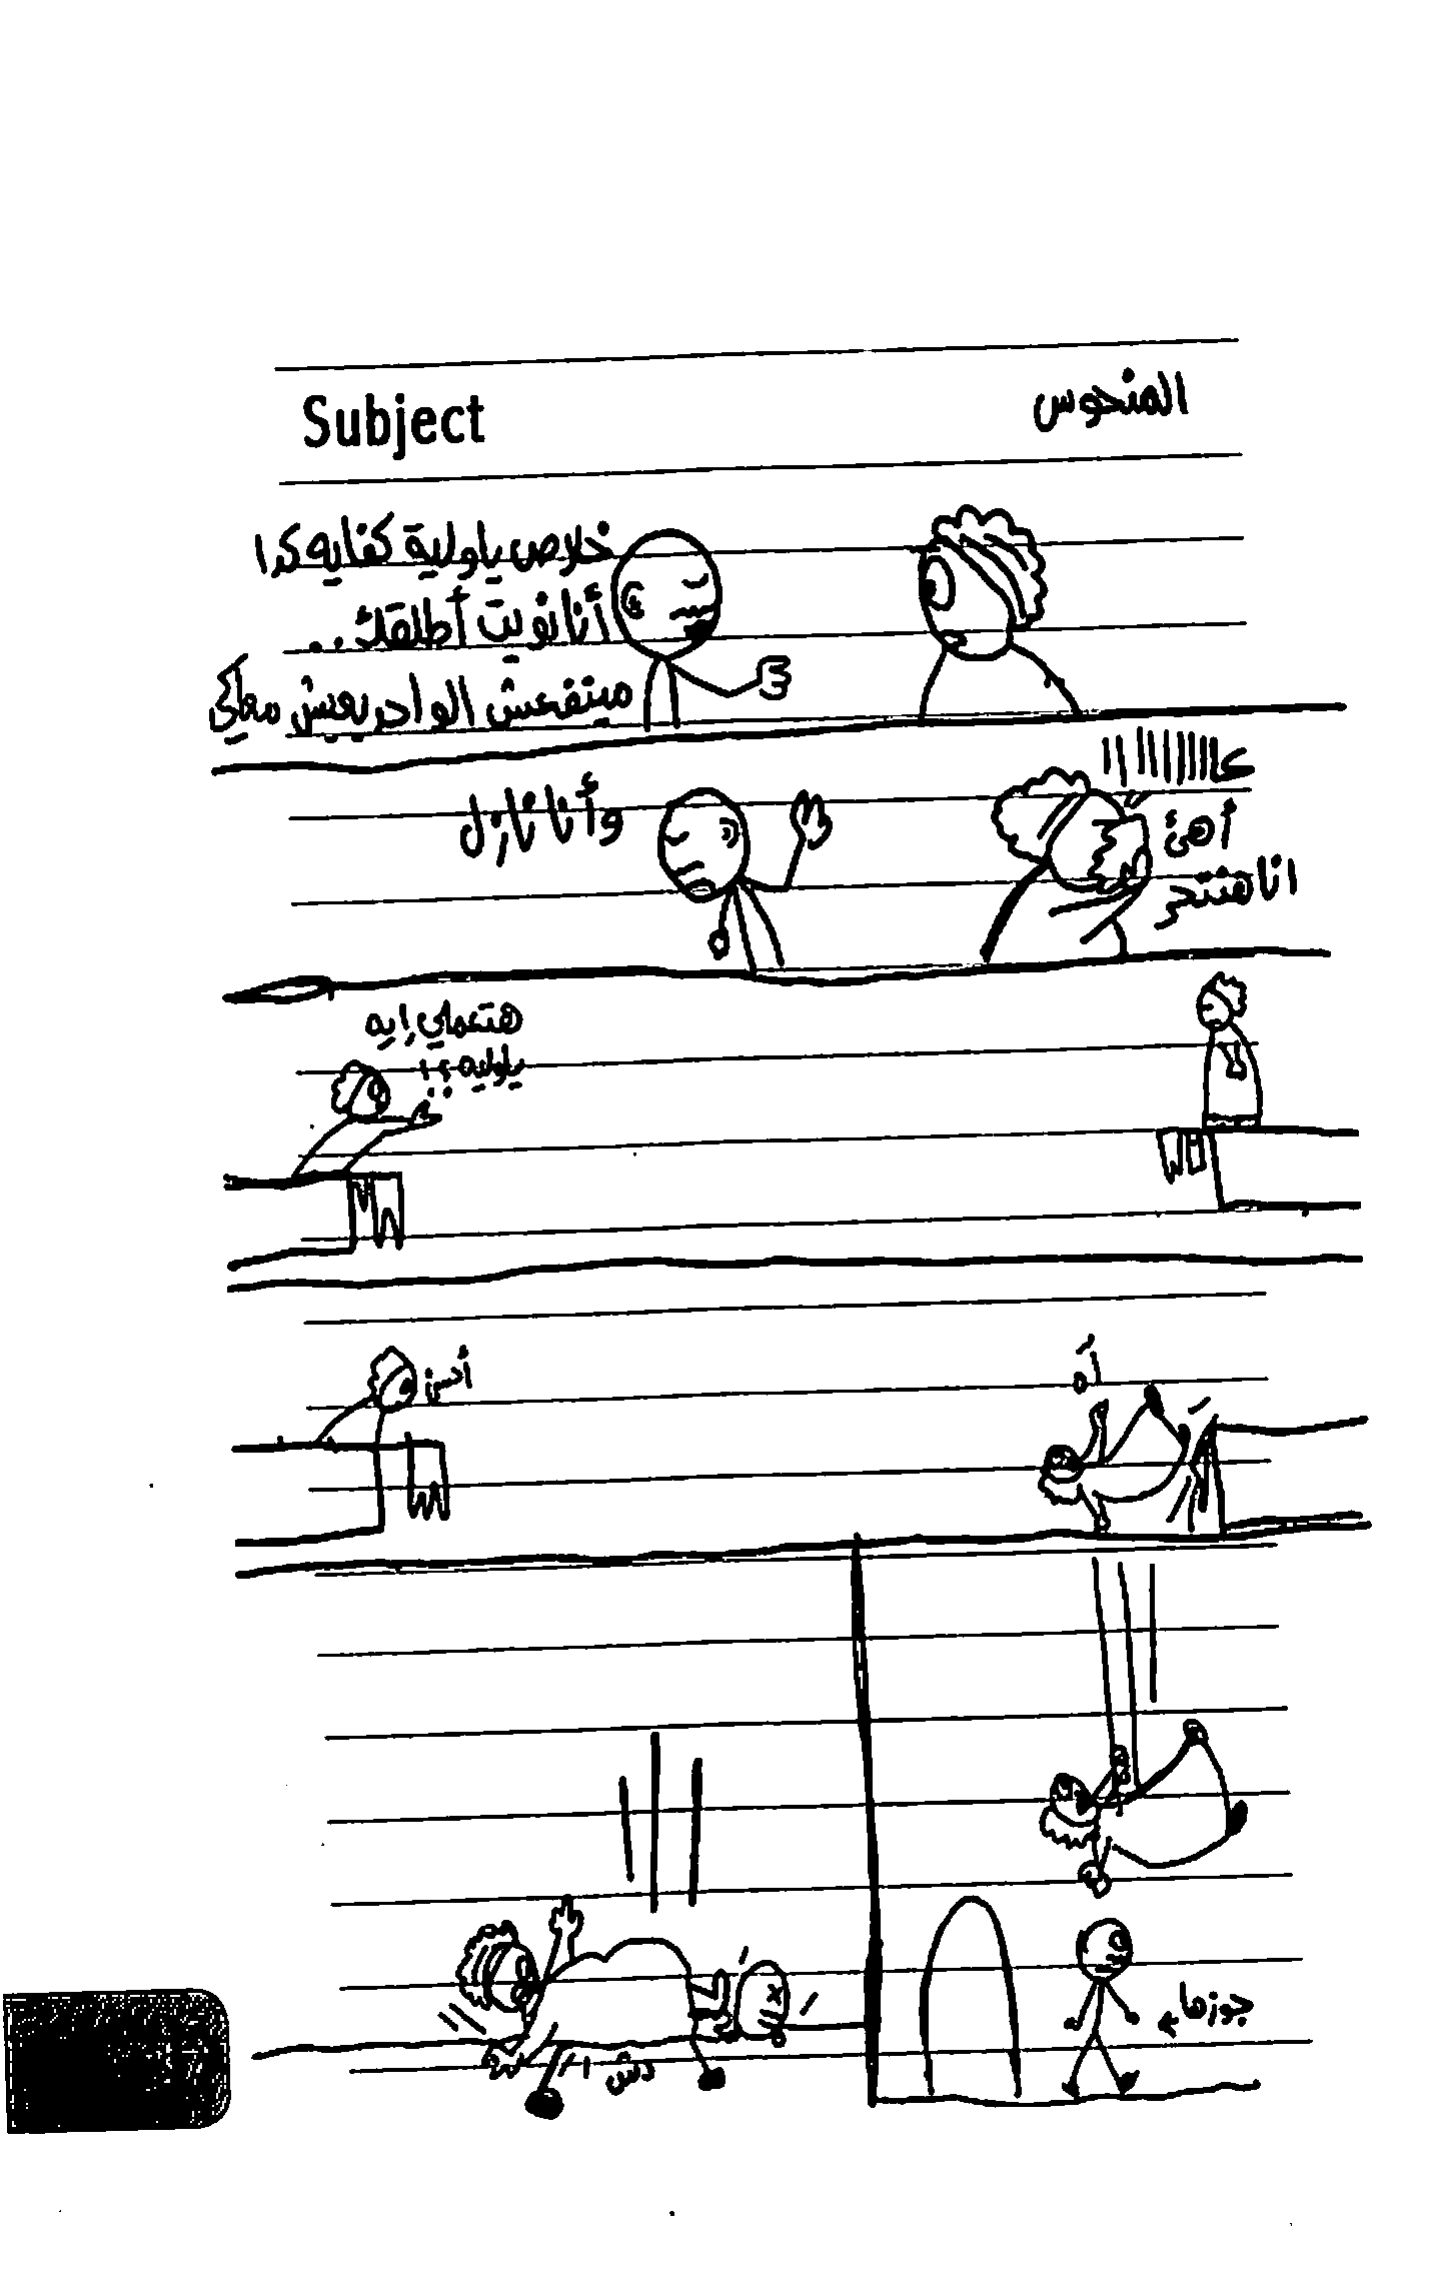 Subject
المنحوس
خلاص ياولية كفايه كدا
أنا نويت أطلقك..
مينفعش الواحد يعيش معاكي
عااااااااا
أهئ
انا هنتحر
وأنا نازل
هتعملي إيه
ياوليه؟!
أحسن
آه
جوزها
دش!